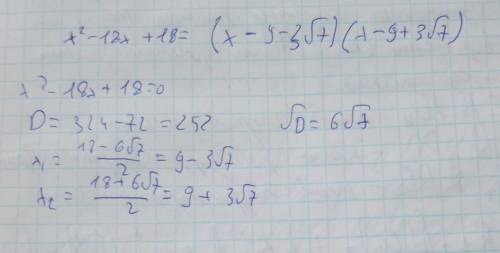 x² - 12x + 18 = (x - 9 - 3√7)(x - 9 + 3√7)
x² - 18x + 18 = 0
D = 324 - 72 = 252 √D = 6√7
x₁ = (12 - 6√7)/2 = 9 - 3√7
x₂ = (18 + 6√7)/2 = 9 + 3√7